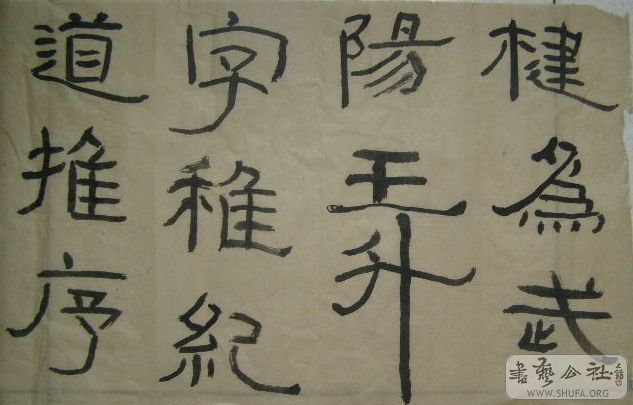 楗為武
陽王升
字稚紀
道推序
書藝公社
WWW.SHUFA.ORG